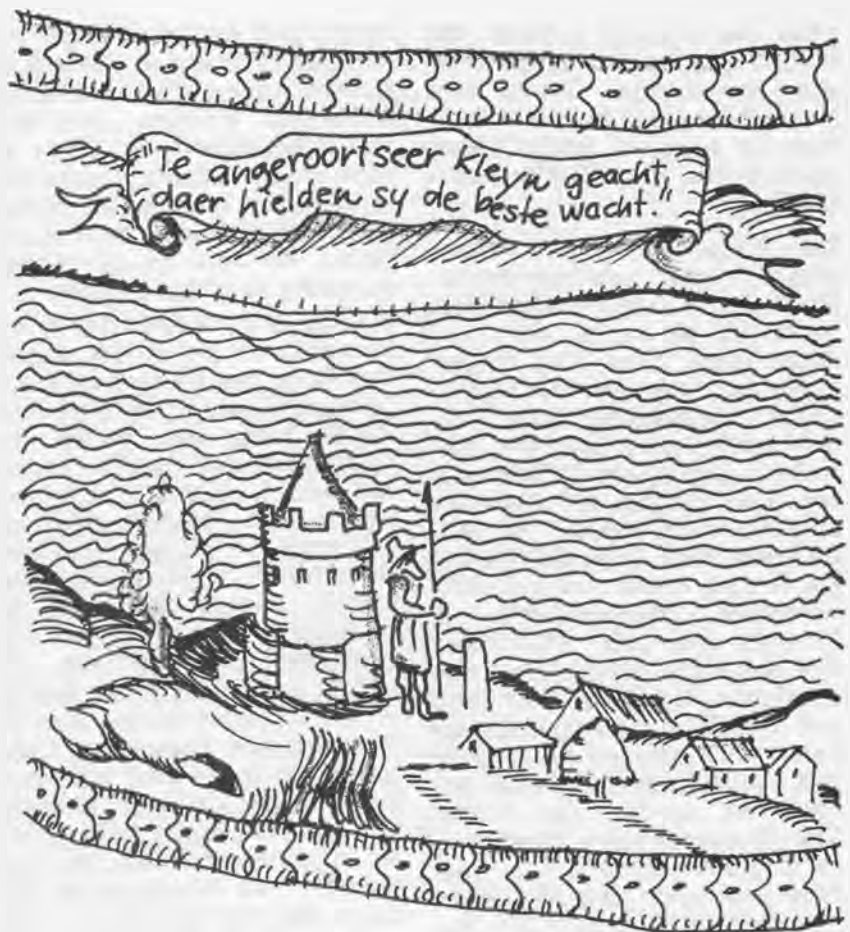 "Te angeroortseer kleyn geacht,
daer hielden sy de beste wacht."